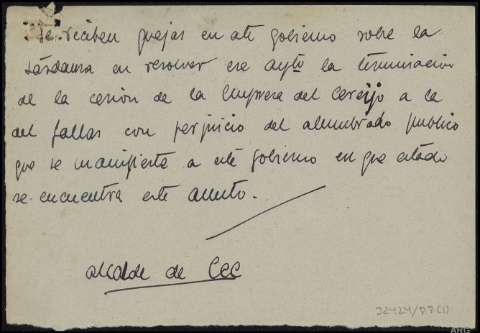 Se reciben quejas en este gobierno sobre la
tardanza en resolver ese aytº la terminación
de la cesión de la Empresa del Cereijo a la
del fallas con perjuicio del alumbrado publico
que se manifieste a este gobierno en que estado
se encuentra este asunto.
alcalde de Cee
32424/D.7 (1)